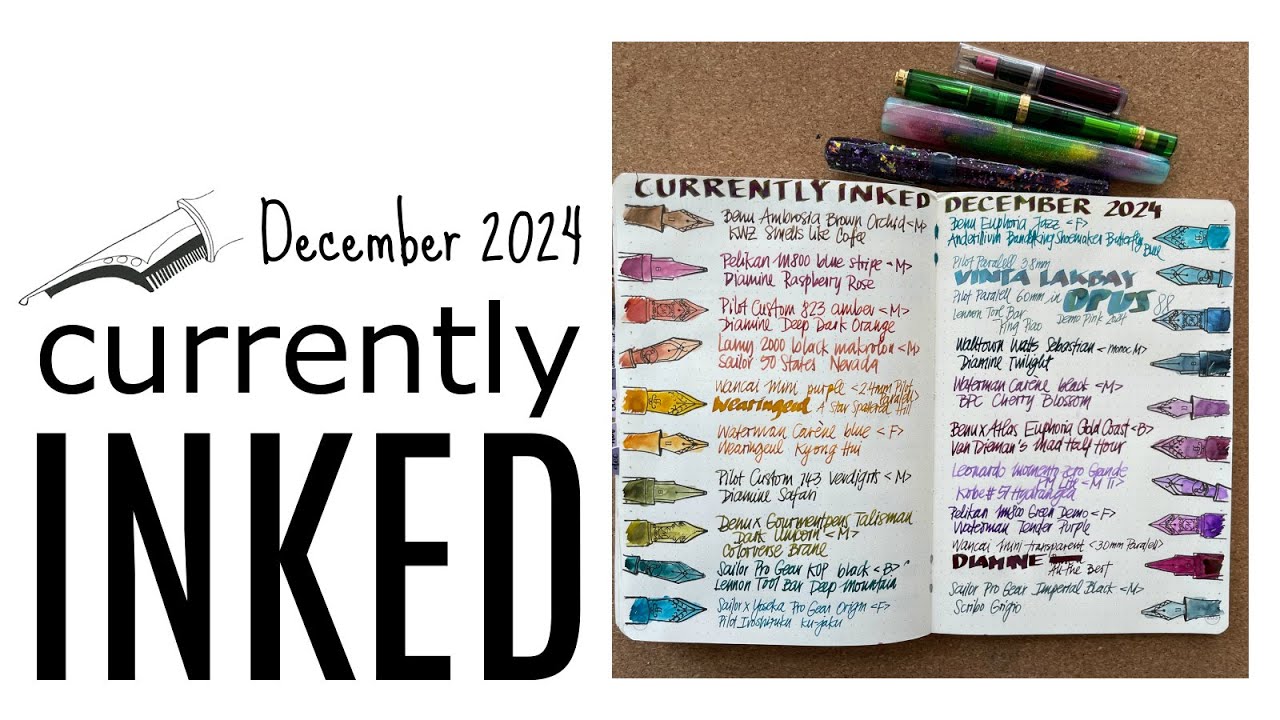 December 2024
currently
INKED
CURRENTLY INKED
Benu Ambrosia Brown Orchid <M>
KWZ Smells Like Cafe
Pelikan m800 blue stripe <M>
Diamine Raspberry Rose
Pilot Custom 823 amber <M>
Diamine Deep Dark Orange
Lamy 2000 black makrolon <M>
Sailor 50 States Nevada
Wancai mini purple <2.4mm Pilot
Parallel>
Wearingeul A Star Spattered Hill
Waterman Carène blue <F>
Wearingeul Kyong Hui
Pilot Custom 743 Verdigris <M>
Diamine Safari
Benu x Gourmetpens Talisman
Dark Unicorn <M>
Colorverse Brane
Sailor Pro Gear KOP black <B>
Lennon Tool Bar Deep Mountain
Sailor x Yoseka Pro Gear Origin <F>
Pilot Iroshizuku Ku-jaku
DECEMBER 2024
Benu Euphoria Jazz <F>
Anderillium Shoemaker Butterfly
Blue
Pilot Parallel 3.8mm
VINTA LAKBAY
Pilot Parallel 6.0mm in OPUS 88
Lennon Tool Bar Demo Pink
Ping Piao
Walltown Watts Sebastian <mono M>
Diamine Twilight
Waterman Carène black <M>
BPC Cherry Blossom
Benu x Atlas Euphoria Gold Coast <B>
Van Dieman's Mad Half Hour
Leonardo Momento Zero Grande
<M Ti>
Kobe #57 Hydrangea
Pelikan m800 Green Demo <F>
Waterman Tender Purple
Wancai mini transparent <3.0mm Parallel>
DIAMINE
All the Best
Sailor Pro Gear Imperial Black <M>
Scribo Grigio